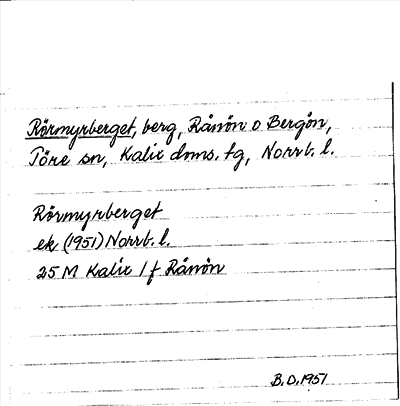 Rörmyrberget, berg, Rånön o Bergön,
Töre sn, Kalix dms. tg, Norrb. l.
Rörmyrberget
ek (1951) Norrb. l.
25 M Kalix / f Rånön
B.D. 1951